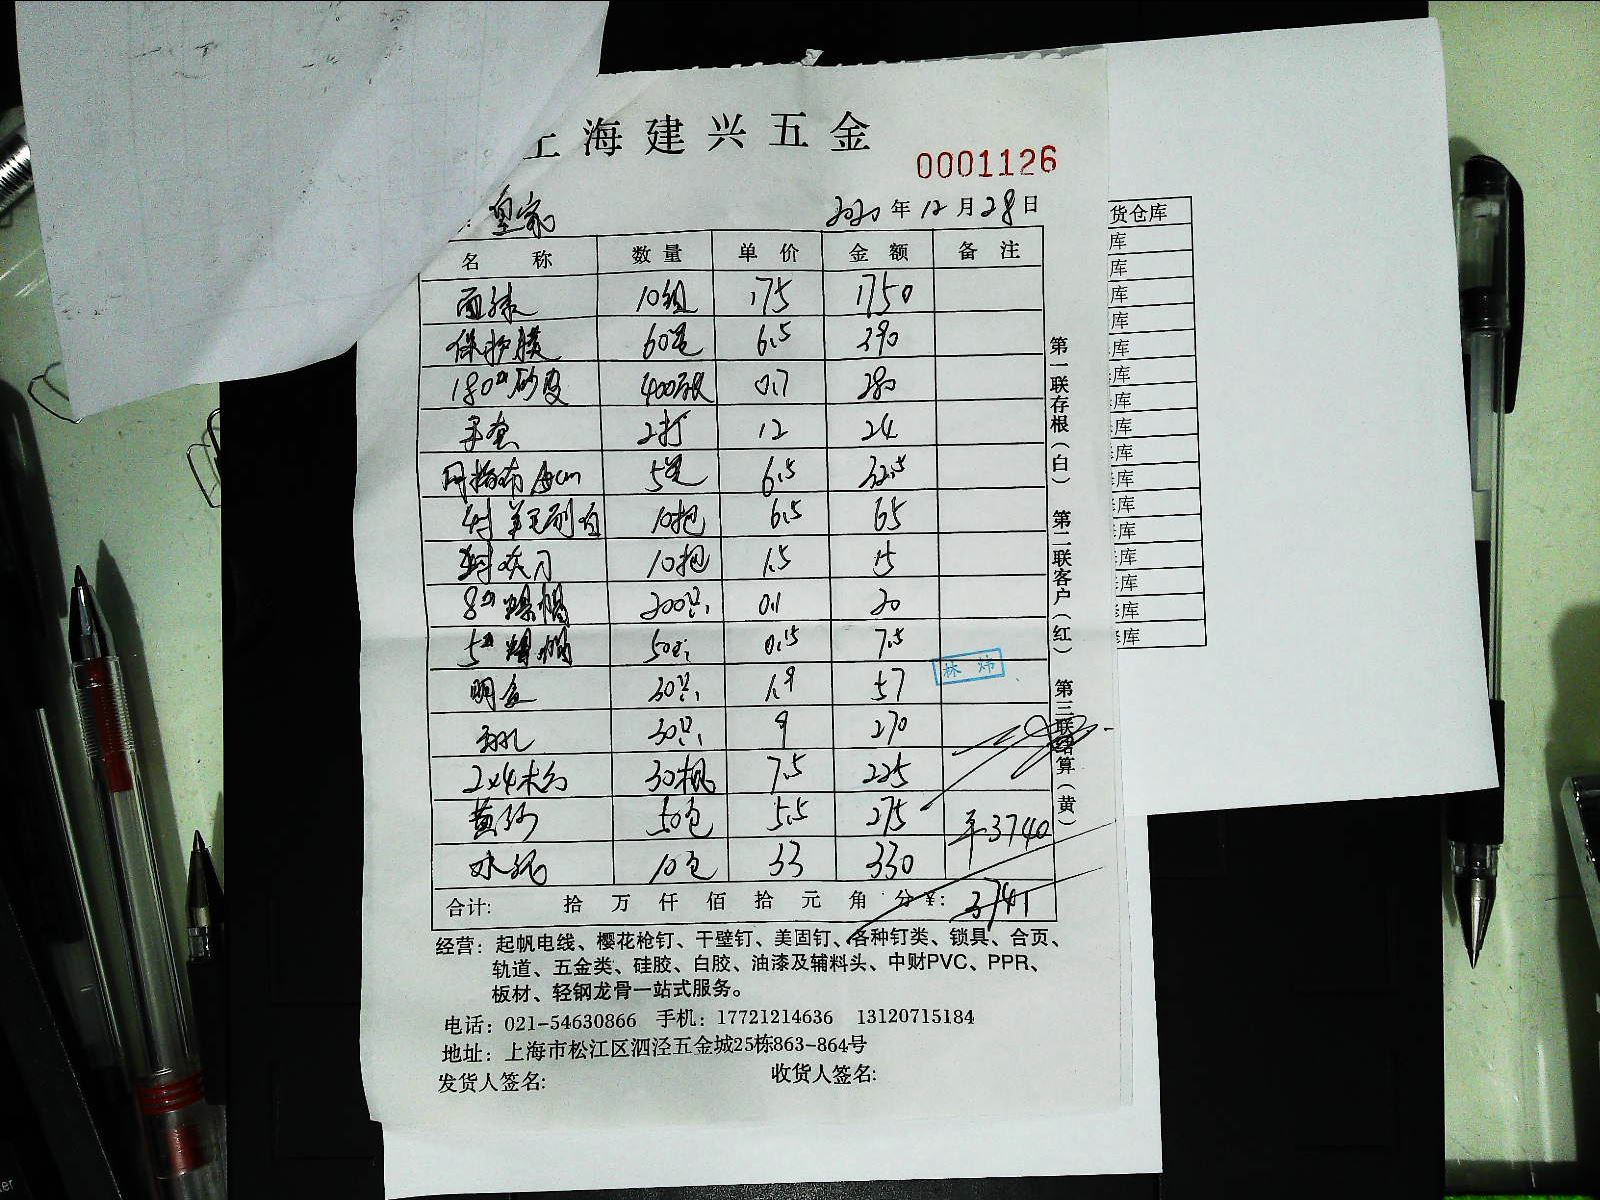 上海建兴五金
0001126
: 皇家
2020年12月28日
名 称 数量 单价 金额 备注
面漆 10组 175 1750
保护膜 60卷 6.5 390
180#砂皮 400张 0.7 280
手套 2打 12 24
网格布 5卷 6.5 32.5
4寸羊毛刷 10把 6.5 65
灰刀 10把 1.5 15
8#螺帽 200只 0.1 20
5#螺帽 50只 0.15 7.5
明盒 30只 1.9 57
30只 9 270
2x4木方 30根 7.5 225
黄沙 50包 5.5 275
水泥 10包 33 330
林炜
平3740
合计: 拾 万 仟 佰 拾 元 角 分 ¥: 3741
第一联存根(白) 第二联客户(红) 第三联结算(黄)
经营: 起帆电线、樱花枪钉、干壁钉、美固钉、各种钉类、锁具、合页、
轨道、五金类、硅胶、白胶、油漆及辅料头、中财PVC、PPR、
板材、轻钢龙骨一站式服务。
电话: 021-54630866 手机: 17721214636 13120715184
地址: 上海市松江区泗泾五金城25栋863-864号
发货人签名: 收货人签名:
货仓库
库
库
库
库
库
库
库
库
库
库
库
库
库
库
库
库